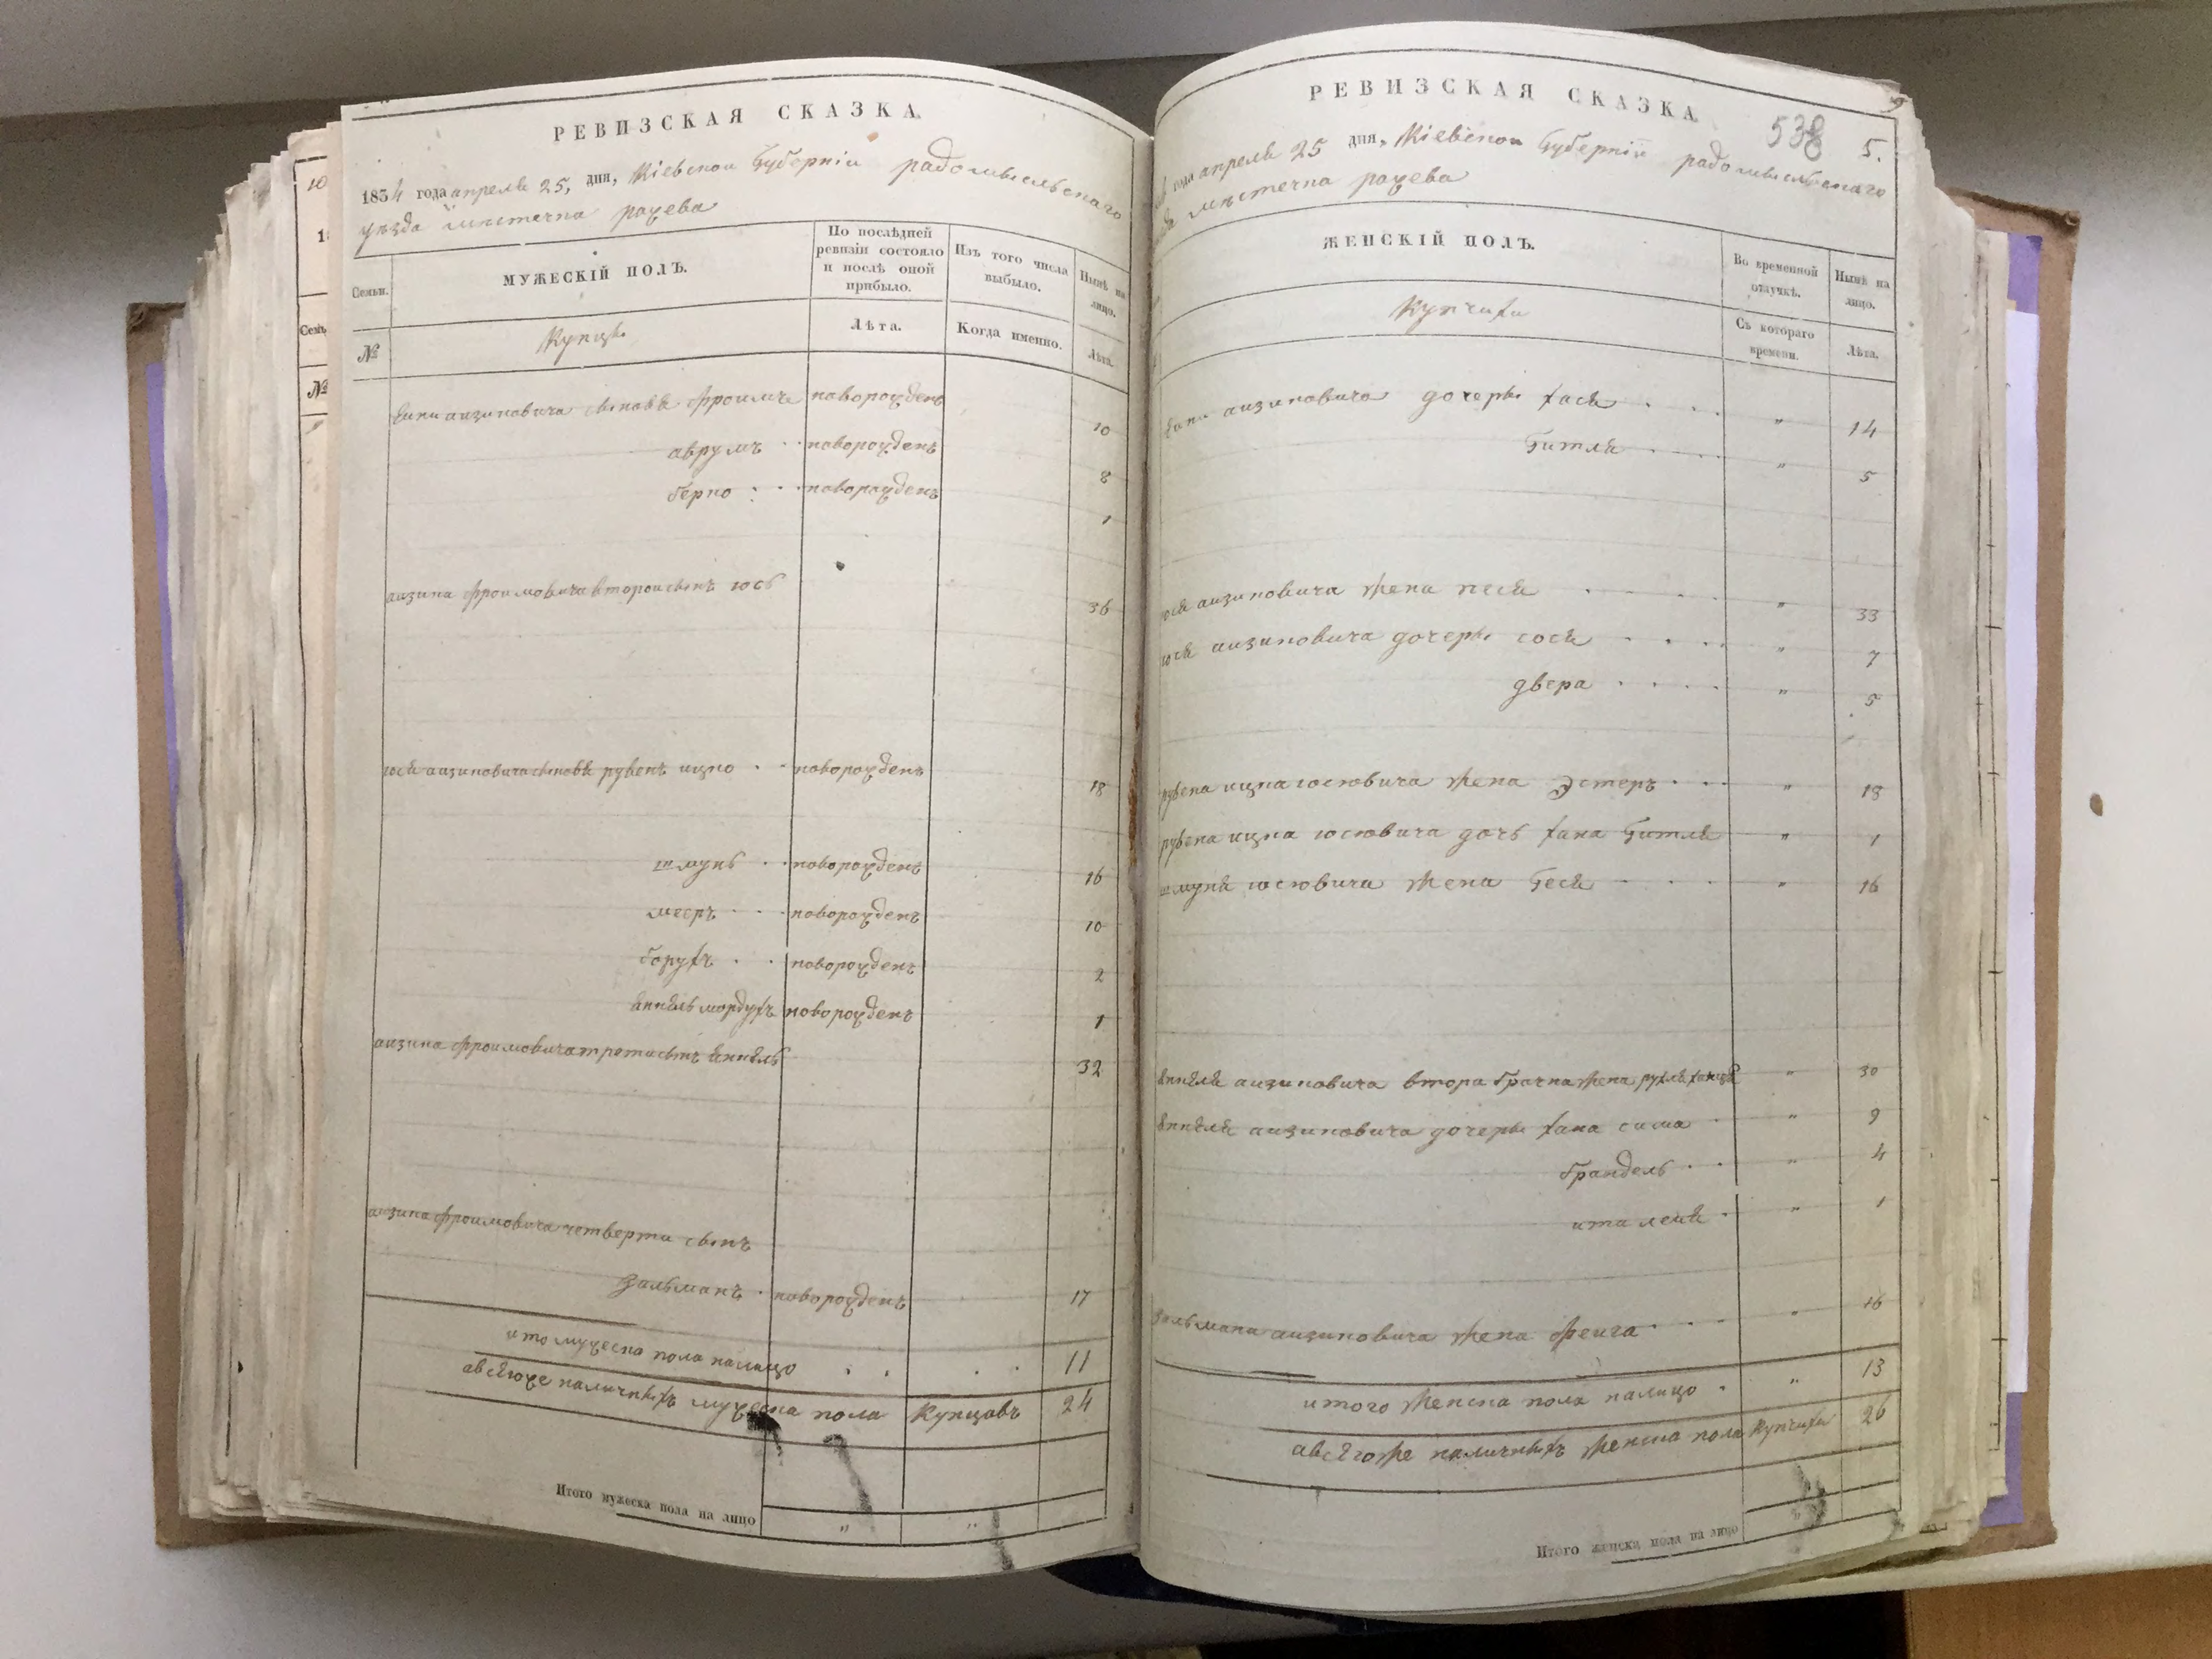 10
1
Семь
№
РЕВИЗСКАЯ СКАЗКА.
1834 года апреля 25, дня, Кіевской Губерніи радомысльскаго
уезда местечка рожева
Семьи.
МУЖЕСКІЙ ПОЛЪ.
По послѣдней ревизіи состояло и послѣ оной прибыло.
Изъ того числа выбыло.
Нынѣ на лицо.
№
Купцы
Лѣта.
Когда именно.
Лѣта.
аизиковича сыновя фроимъ новорожденъ 10
аврумъ новорожденъ 8
берко новорожденъ 1
аизика фроимовича второи сынъ юсь 36
юся аизиковича сыновя рувенъ ицко новорожденъ 18
шмунь новорожденъ 16
мееръ новорожденъ 10
борухъ новорожденъ 2
янкель мордухъ новорожденъ 1
аизика фроимовича трети сынъ янкель 32
аизика фроимовича четверти сынъ
зальманъ новорожденъ 17
итого мужеска пола налицо 11
авсягоже наличныхъ мужеска пола Купцовъ 24
Итого мужеска пола на лицо " "
РЕВИЗСКАЯ СКАЗКА.
538
5.
года апреля 25 дня, Кіевской Губерніи радомысльскаго
местечка рожева
ЖЕНСКІЙ ПОЛЪ.
Во временной отлучкѣ.
Нынѣ на лицо.
Купчихи
Съ котораго времени.
Лѣта.
аизиковича дочеры хася " 14
Гитля " 5
юся аизиковича жена песя " 33
юся аизиковича дочеры сося " 7
двера " 5
рувена ицка юсювича жена Эстеръ " 18
рувена ицка юсювича дочь хана Гитля " 1
шмуня юсювича жена Гися " 16
янкеля аизиковича втора брачна жена рухля " 30
янкеля аизиковича дочеры хана сима " 9
брандель " 4
ита лея " 1
зальмана аизиковича жена феига " 16
итого женска пола налицо " 13
авсягоже наличныхъ женска пола Купчихи 26
Итого женска пола на лицо "